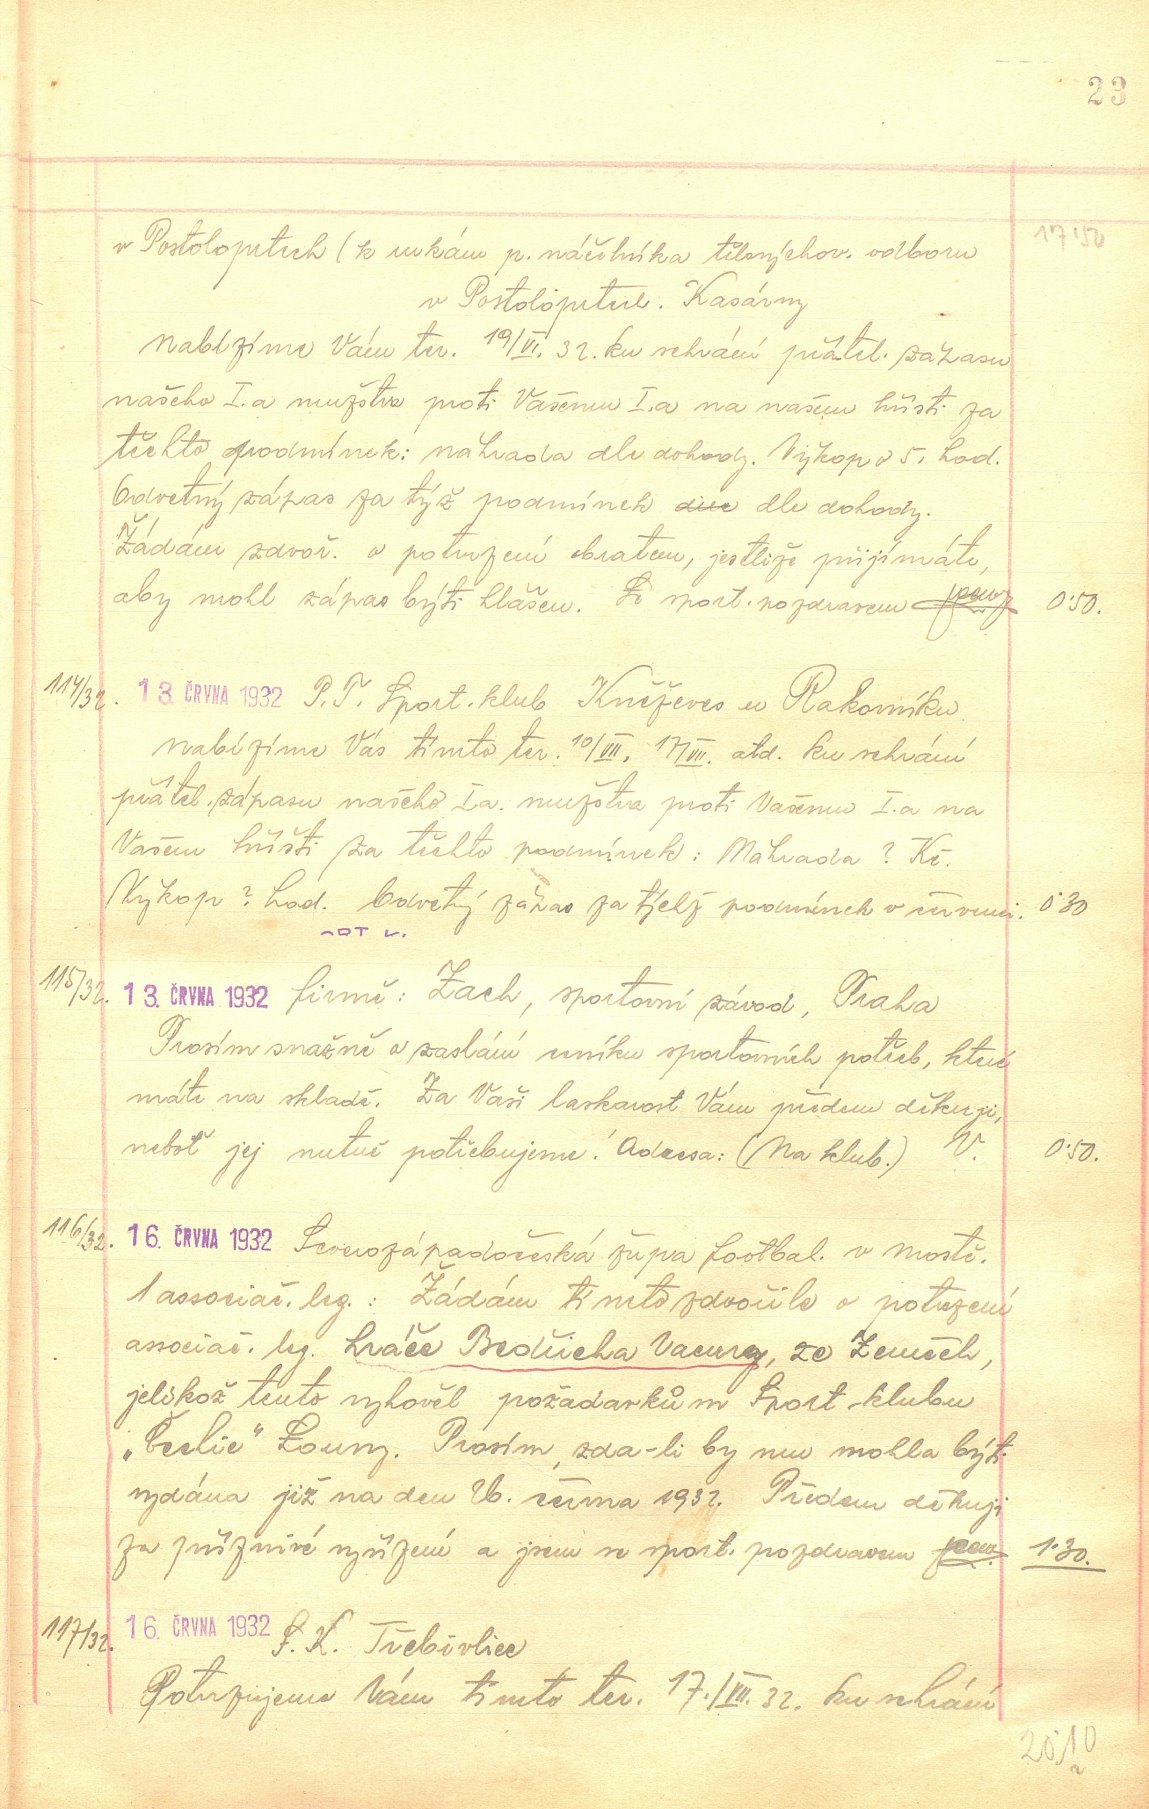 23
17·50
v Postoloprtech (k rukám p. náčelníka tělovýchov. odboru
v Postoloprtech. Kasárny
Nabízíme Vám ter. 19/VI. 32. ku sehrání přátel. zápasu
našeho I.a mužstva proti Vašemu I.a na našem hřišti za
těchto podmínek: náhrada dle dohody. Výkop o 5. hod.
Odvetný zápas za týž podmínek dle dohody.
Žádám zdvoř. o potvrzení obratem, jestliže přijímáte,
aby mohl zápas býti hlášen. Se sport. pozdravem 0·50.
114/32. 13. ČRVNA 1932 P.T. Sport. klub Kněževes u Rakovníku
Nabízíme Vás tímto ter. 10/VII., 17/VII. atd. ku sehrání
přátel. zápasu našeho I.a. mužstva proti Vašemu I.a na
Vašem hřišti za těchto podmínek: Náhrada ? Kč.
Výkop ? hod. Odvetný zápas za týchž podmínek v červenci. 0·30
115/32. 13. ČRVNA 1932 firmě: Zach, sportovní závod, Praha
Prosím snažně o zaslání ceníku sportovních potřeb, které
máte na skladě. Za Vaši laskavost Vám předem děkuji,
neboť jej nutně potřebujeme! Adresa: (Na klub.) V. 0·50.
116/32. 16. ČRVNA 1932 Severozápadočeská župa footbal. v Mostě.
1 associač. leg. : Žádám tímto zdvořile o potvrzení
associač. leg. hráče Bedřicha Vacury, ze Zeměch,
jelikož tento vyhověl požadavkům Sport. klubu
„Čechie" Louny. Prosím, zda-li by mu mohla býti
vydána již na den 26. června 1932. Předem děkuji
za příznivé vyřízení a jsem se sport. pozdravem 1·30.
117/32. 16. ČRVNA 1932 S.K. Třebívlice
Potvrzujeme Vám tímto ter. 17./VII. 32. ku sehrání
20·10